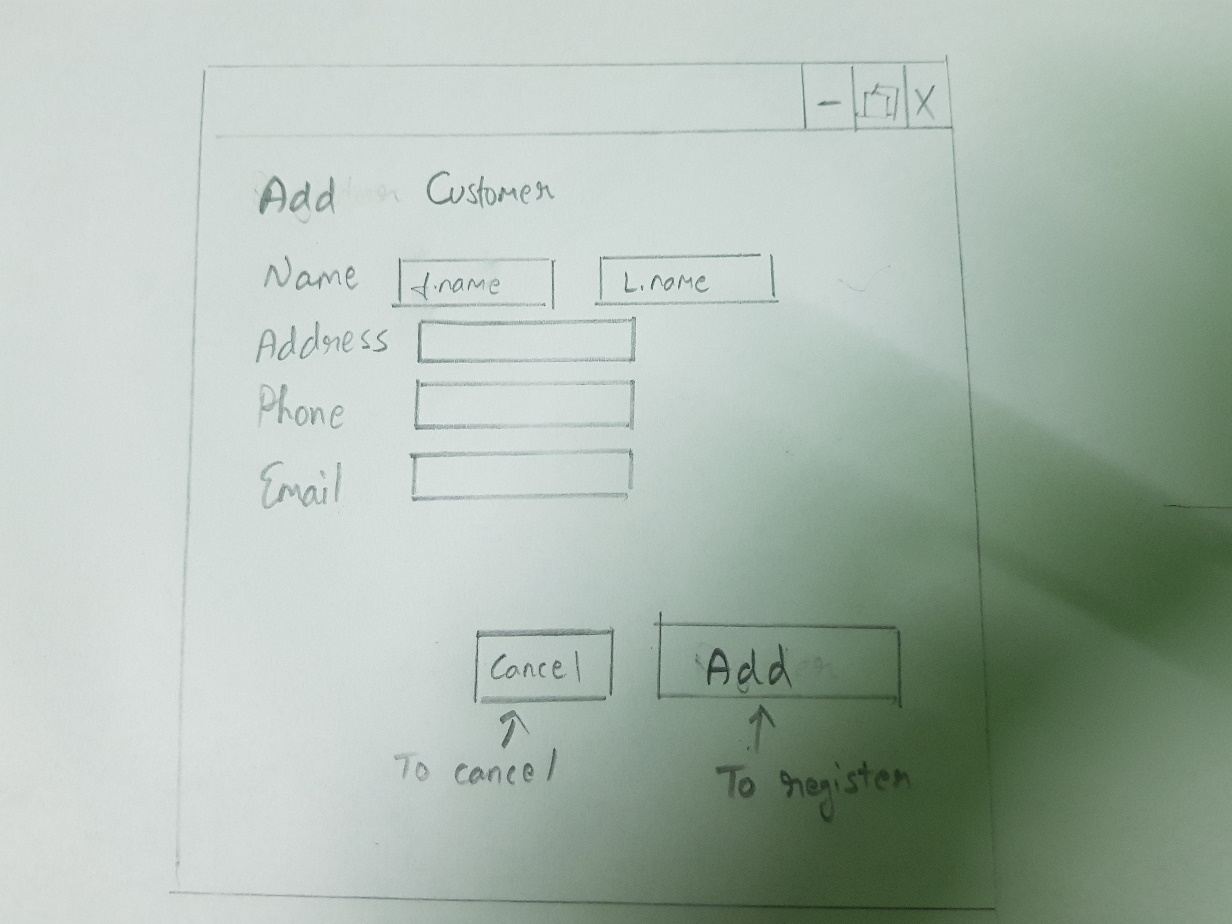 - X
Add Customer
Name f.name L.name
Address
Phone
Email
Cancel Add
To cancel To register